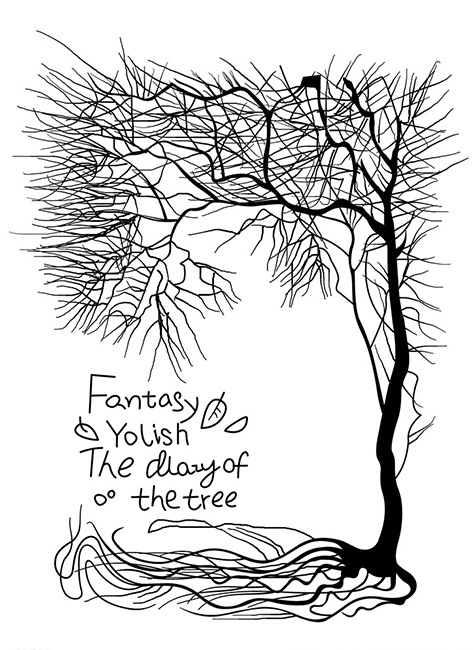 Fantasy
Yolish
The diary of
the tree